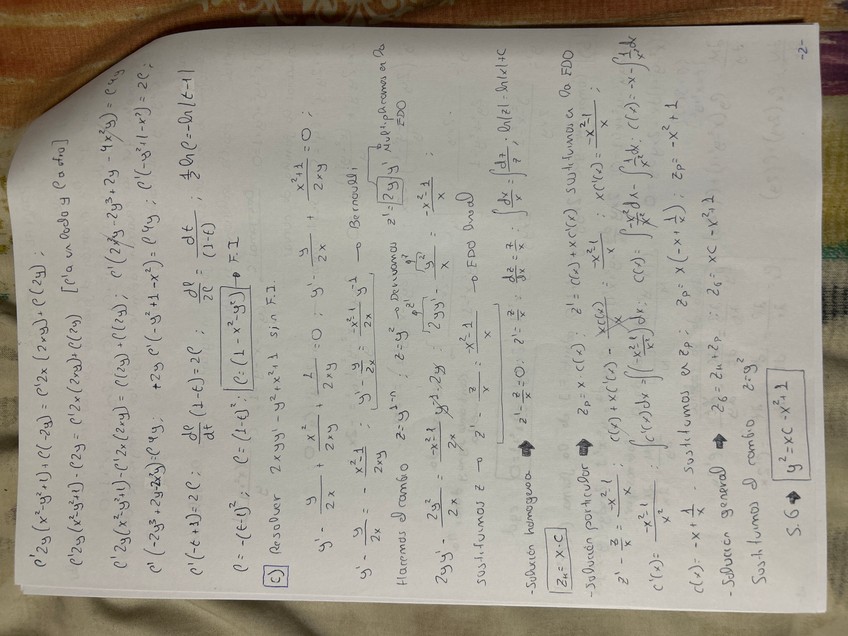 ρ'2y(x²-y²+1)+ρ(-2y) = ρ'2x(2xy)+ρ(2y);
ρ'2y(x²-y²+1)-ρ2y = ρ'2x(2xy)+ρ(2y) [ρ' a un lado y ρ a otro]
ρ'2y(x²-y²+1)-ρ'2x(2xy) = ρ(2y)+ρ(2y); ρ'(2x²y-2y³+2y-4x²y) = ρ4y
ρ'(-2y³+2y-2x²y)=ρ4y; +2y ρ'(-y²+1-x²)=ρ4y; ρ'(-y²+1-x²)=2ρ;
ρ'(-t+1)=2ρ; dρ/dt (1-t)=2ρ; dρ/2ρ = dt/(1-t); 1/2 lnρ=-ln|t-1|
ρ=-(t-1)²; ρ=(1-t)²; ρ=(1-x²-y²) → F.I
c) Resolver 2xyy'-y²+x²+1 sin F.I.
y' - y/2x + x²/2xy + 1/2xy = 0; y' - y/2x + x²+1/2xy = 0;
y' - y/2x = - x²-1/2xy; y' - y/2x = -x²-1/2x y⁻¹ → Bernoulli
Hacemos el cambio z=y¹⁻ⁿ; z=y² → Derivamos z'=2yy' Multiplicamos en la EDO
2yy' - 2y²/2x = -x²-1/2x y⁻¹·2y; 2yy' - y²/x = -x²-1/x;
sustituimos z → z' - z/x = -x²-1/x → EDO lineal
-Solución homogenea ➡ z' - z/x = 0; z' = z/x; dz/dx = z/x; ∫dx/x = ∫dz/z; ln|z| = ln|x|+C
z_H = x·C
-Solución particular ➡ z_p = x·c(x); z' = c(x)+xc'(x) sustituimos en la EDO
z' - z/x = -x²-1/x; c(x)+xc'(x) - xc(x)/x = -x²-1/x; xc'(x) = -x²-1/x;
c'(x) = -x²-1/x²; ∫c'(x)dx = ∫(-x²-1/x²)dx; c(x) = ∫-x²/x² dx - ∫1/x² dx; c(x) = -x-∫1/x² dx
c(x) = -x + 1/x. Sustituimos en z_p; z_p = x(-x+1/x); z_p = -x²+1
-Solución general ➡ z_G = z_H + z_p; z_G = xC -x²+1
Sustituimos el cambio z=y²
S.G ➡ y² = xC -x²+1
-2-